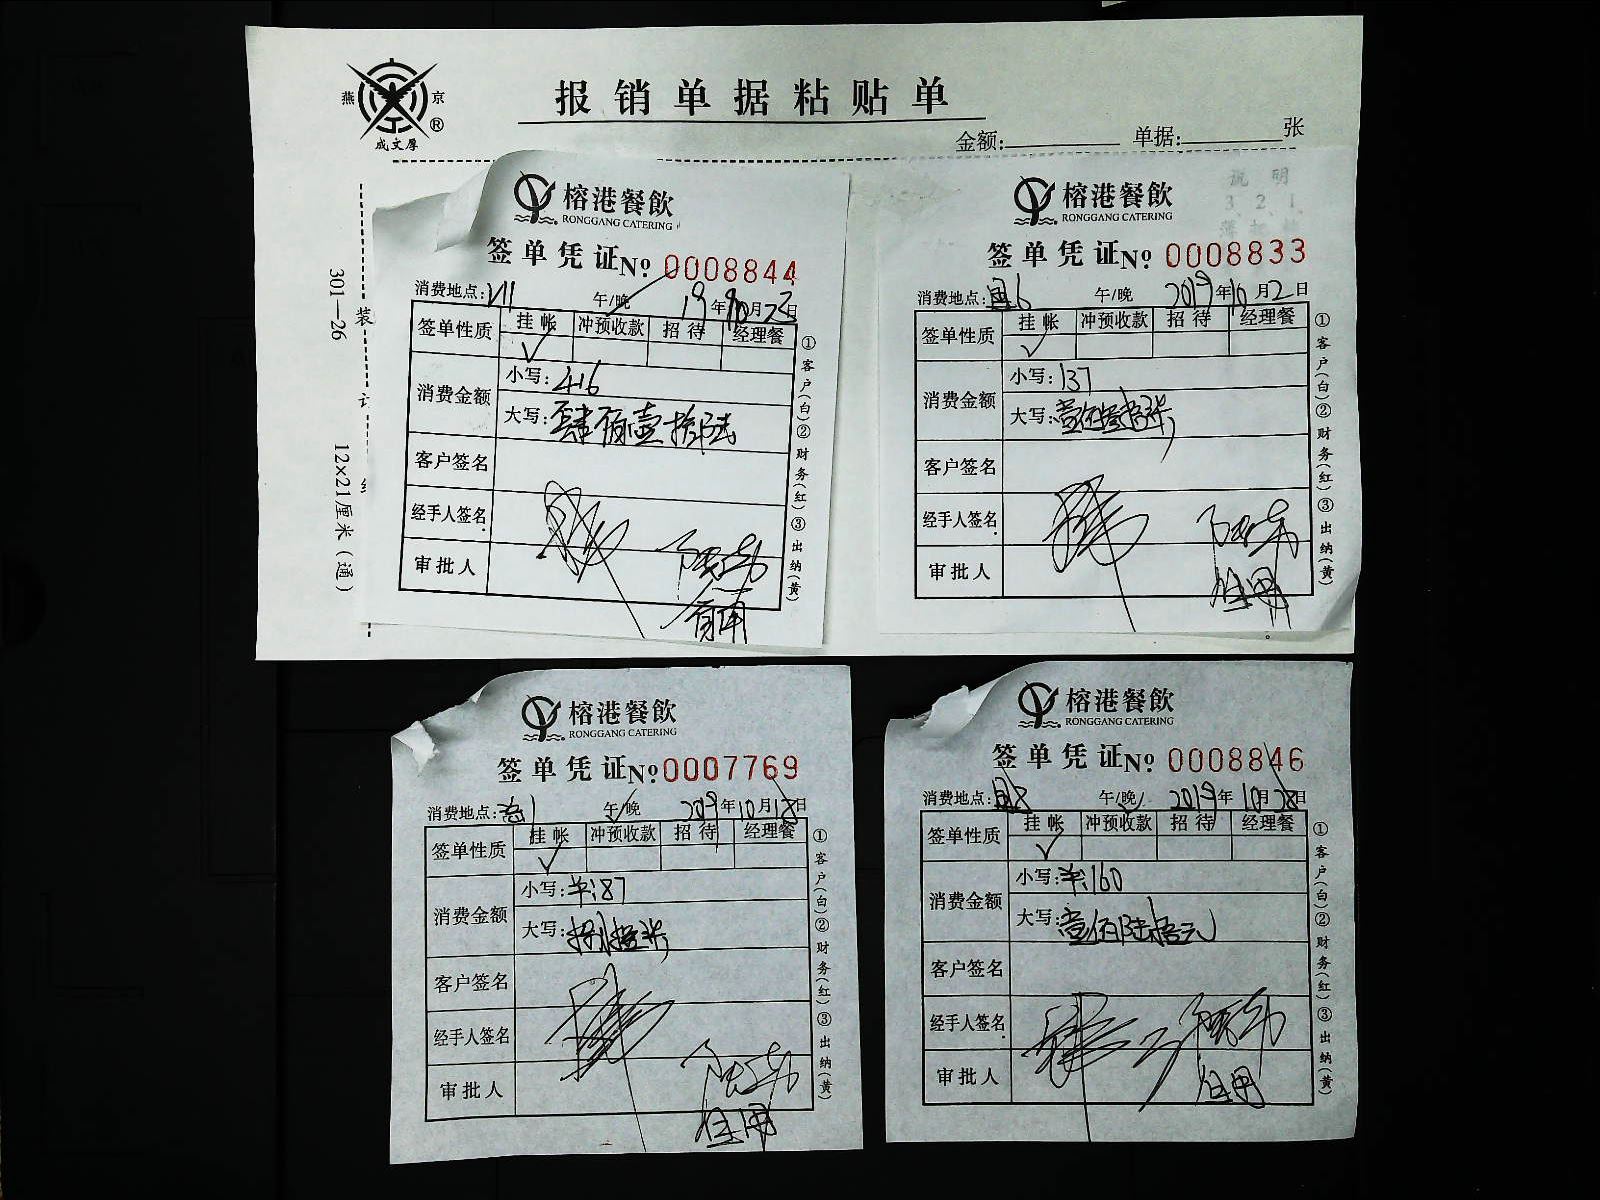 燕 京
®
成文厚
报销单据粘贴单
金额: 单据: 张
301—26
12×21厘米(通)
装
订
说 明
3 2 1
榕港餐飲
RONGGANG CATERING
签单凭证No 0008844
消费地点: 午/晚 19年10月23日
签单性质 挂帐 冲预收款 招待 经理餐
✓
消费金额 小写: 416
大写: 肆佰壹拾陆
客户签名
经手人签名
审批人
①客户(白)②财务(红)③出纳(黄)
榕港餐飲
RONGGANG CATERING
签单凭证No 0008833
消费地点: 午/晚 2019年10月2日
签单性质 挂帐 冲预收款 招待 经理餐
✓
消费金额 小写: 137
大写: 壹佰叁拾柒
客户签名
经手人签名
审批人
①客户(白)②财务(红)③出纳(黄)
榕港餐飲
RONGGANG CATERING
签单凭证No 0007769
消费地点: 午/晚 2019年10月18日
签单性质 挂帐 冲预收款 招待 经理餐
✓
消费金额 小写: 87
大写: 捌拾柒
客户签名
经手人签名
审批人
①客户(白)②财务(红)③出纳(黄)
榕港餐飲
RONGGANG CATERING
签单凭证No 0008846
消费地点: 午/晚 2019年10月28日
签单性质 挂帐 冲预收款 招待 经理餐
✓
消费金额 小写: 160
大写: 壹佰陆拾元
客户签名
经手人签名
审批人
①客户(白)②财务(红)③出纳(黄)